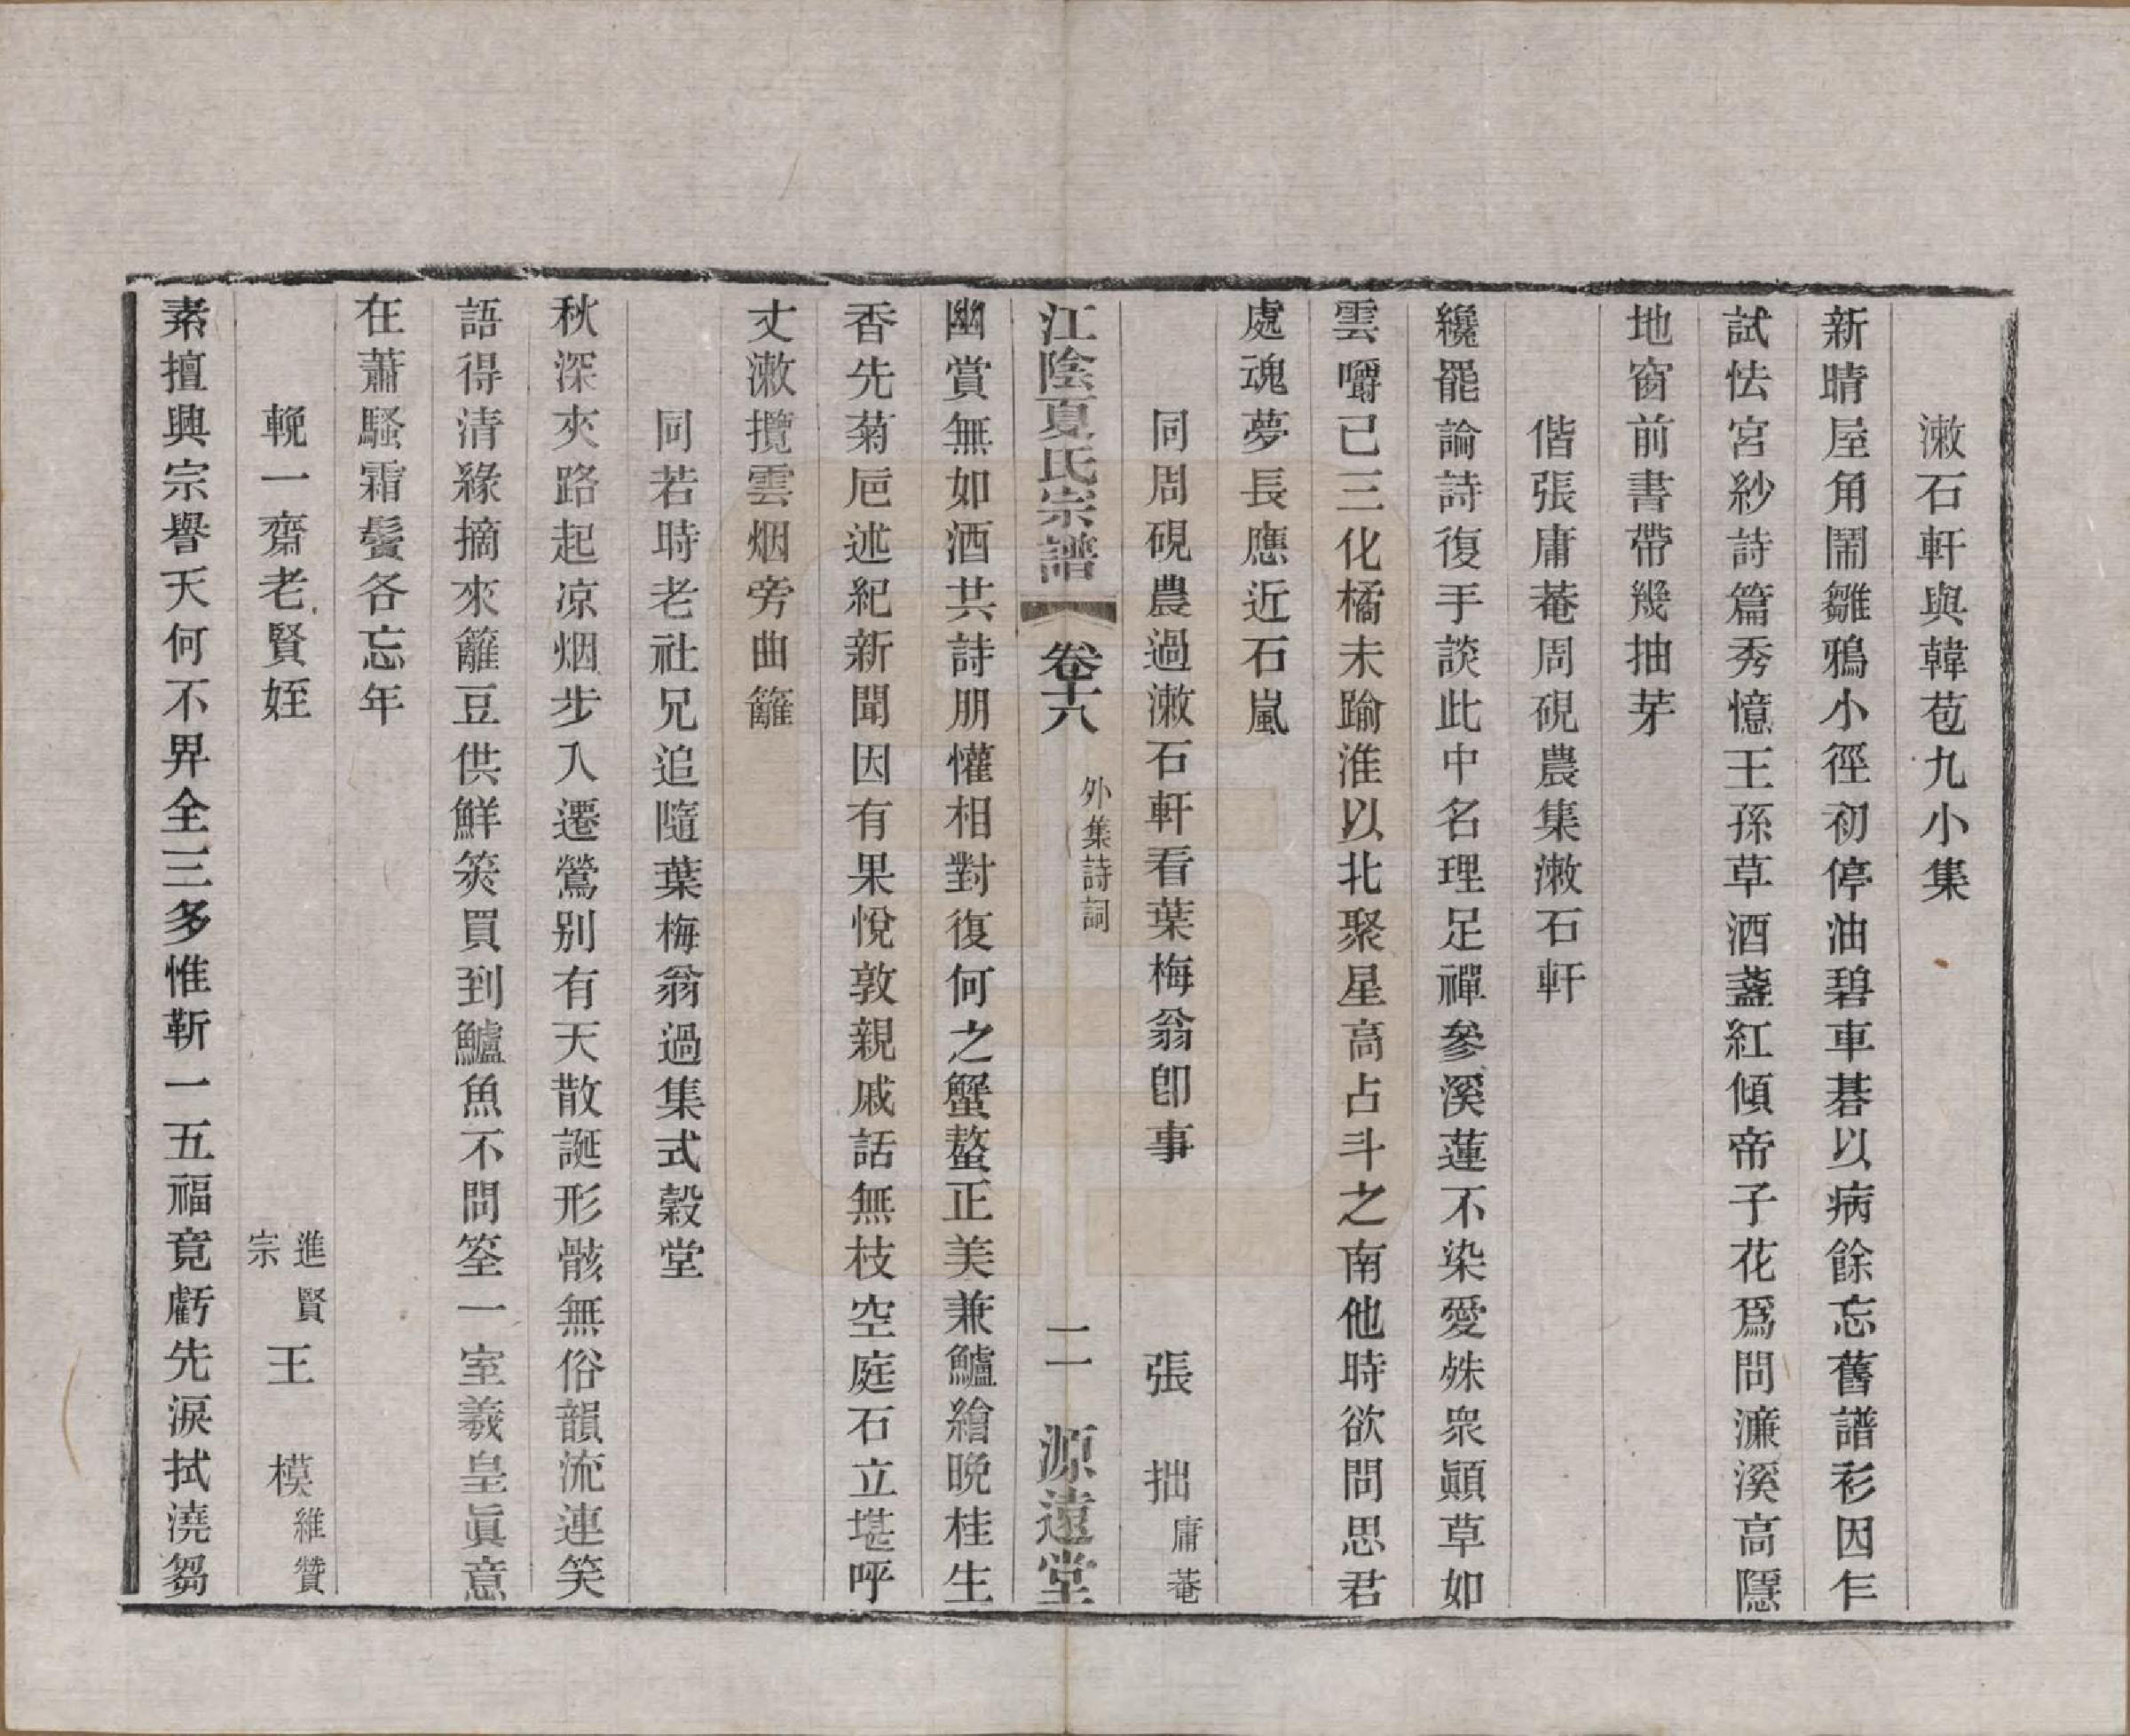 漱石軒與韓苞九小集
新晴屋角鬧雛鴉小徑初停油碧車碁以病餘忘舊譜衫因乍
試怯宮紗詩篇秀憶王孫草酒盞紅傾帝子花爲問濂溪高隱
地窗前書帶幾抽芽
偕張庸菴周硯農集漱石軒
纔罷論詩復手談此中名理足禪參溪蓮不染愛殊衆顚草如
雲嚼已三化橘未踰淮以北聚星高占斗之南他時欲問思君
處魂夢長應近石嵐
同周硯農過漱石軒看葉梅翁卽事 張 拙庸菴
江陰夏氏宗譜 卷十六 外集詩詞 二 源遠堂
幽賞無如酒共詩朋懽相對復何之蟹螯正美兼鱸繪晚桂生
香先菊卮述紀新聞因有果悅敦親戚話無枝空庭石立堪呼
丈漱攬雲烟旁曲籬
同若時老社兄追隨葉梅翁過集式穀堂
秋深夾路起凉烟步入遷鶯別有天散誕形骸無俗韻流連笑
語得清緣摘來籬豆供鮮笑買到鱸魚不問筌一室羲皇眞意
在蕭騷霜鬢各忘年
輓一齋老賢姪 進賢宗王 模維贊
素擅興宗譽天何不畀全三多惟靳一五福竟虧先淚拭澆芻